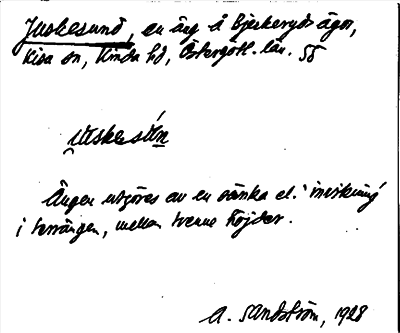 Juskesund, en äng å Bjerkeryds ägor,
Kisa sn, Kinda hd, Östergötl. län. 55
juskesún
Ängen utgöres av en sänka el. invikning
i terrängen, mellan tvenne höjder.
A. Sandström, 1928